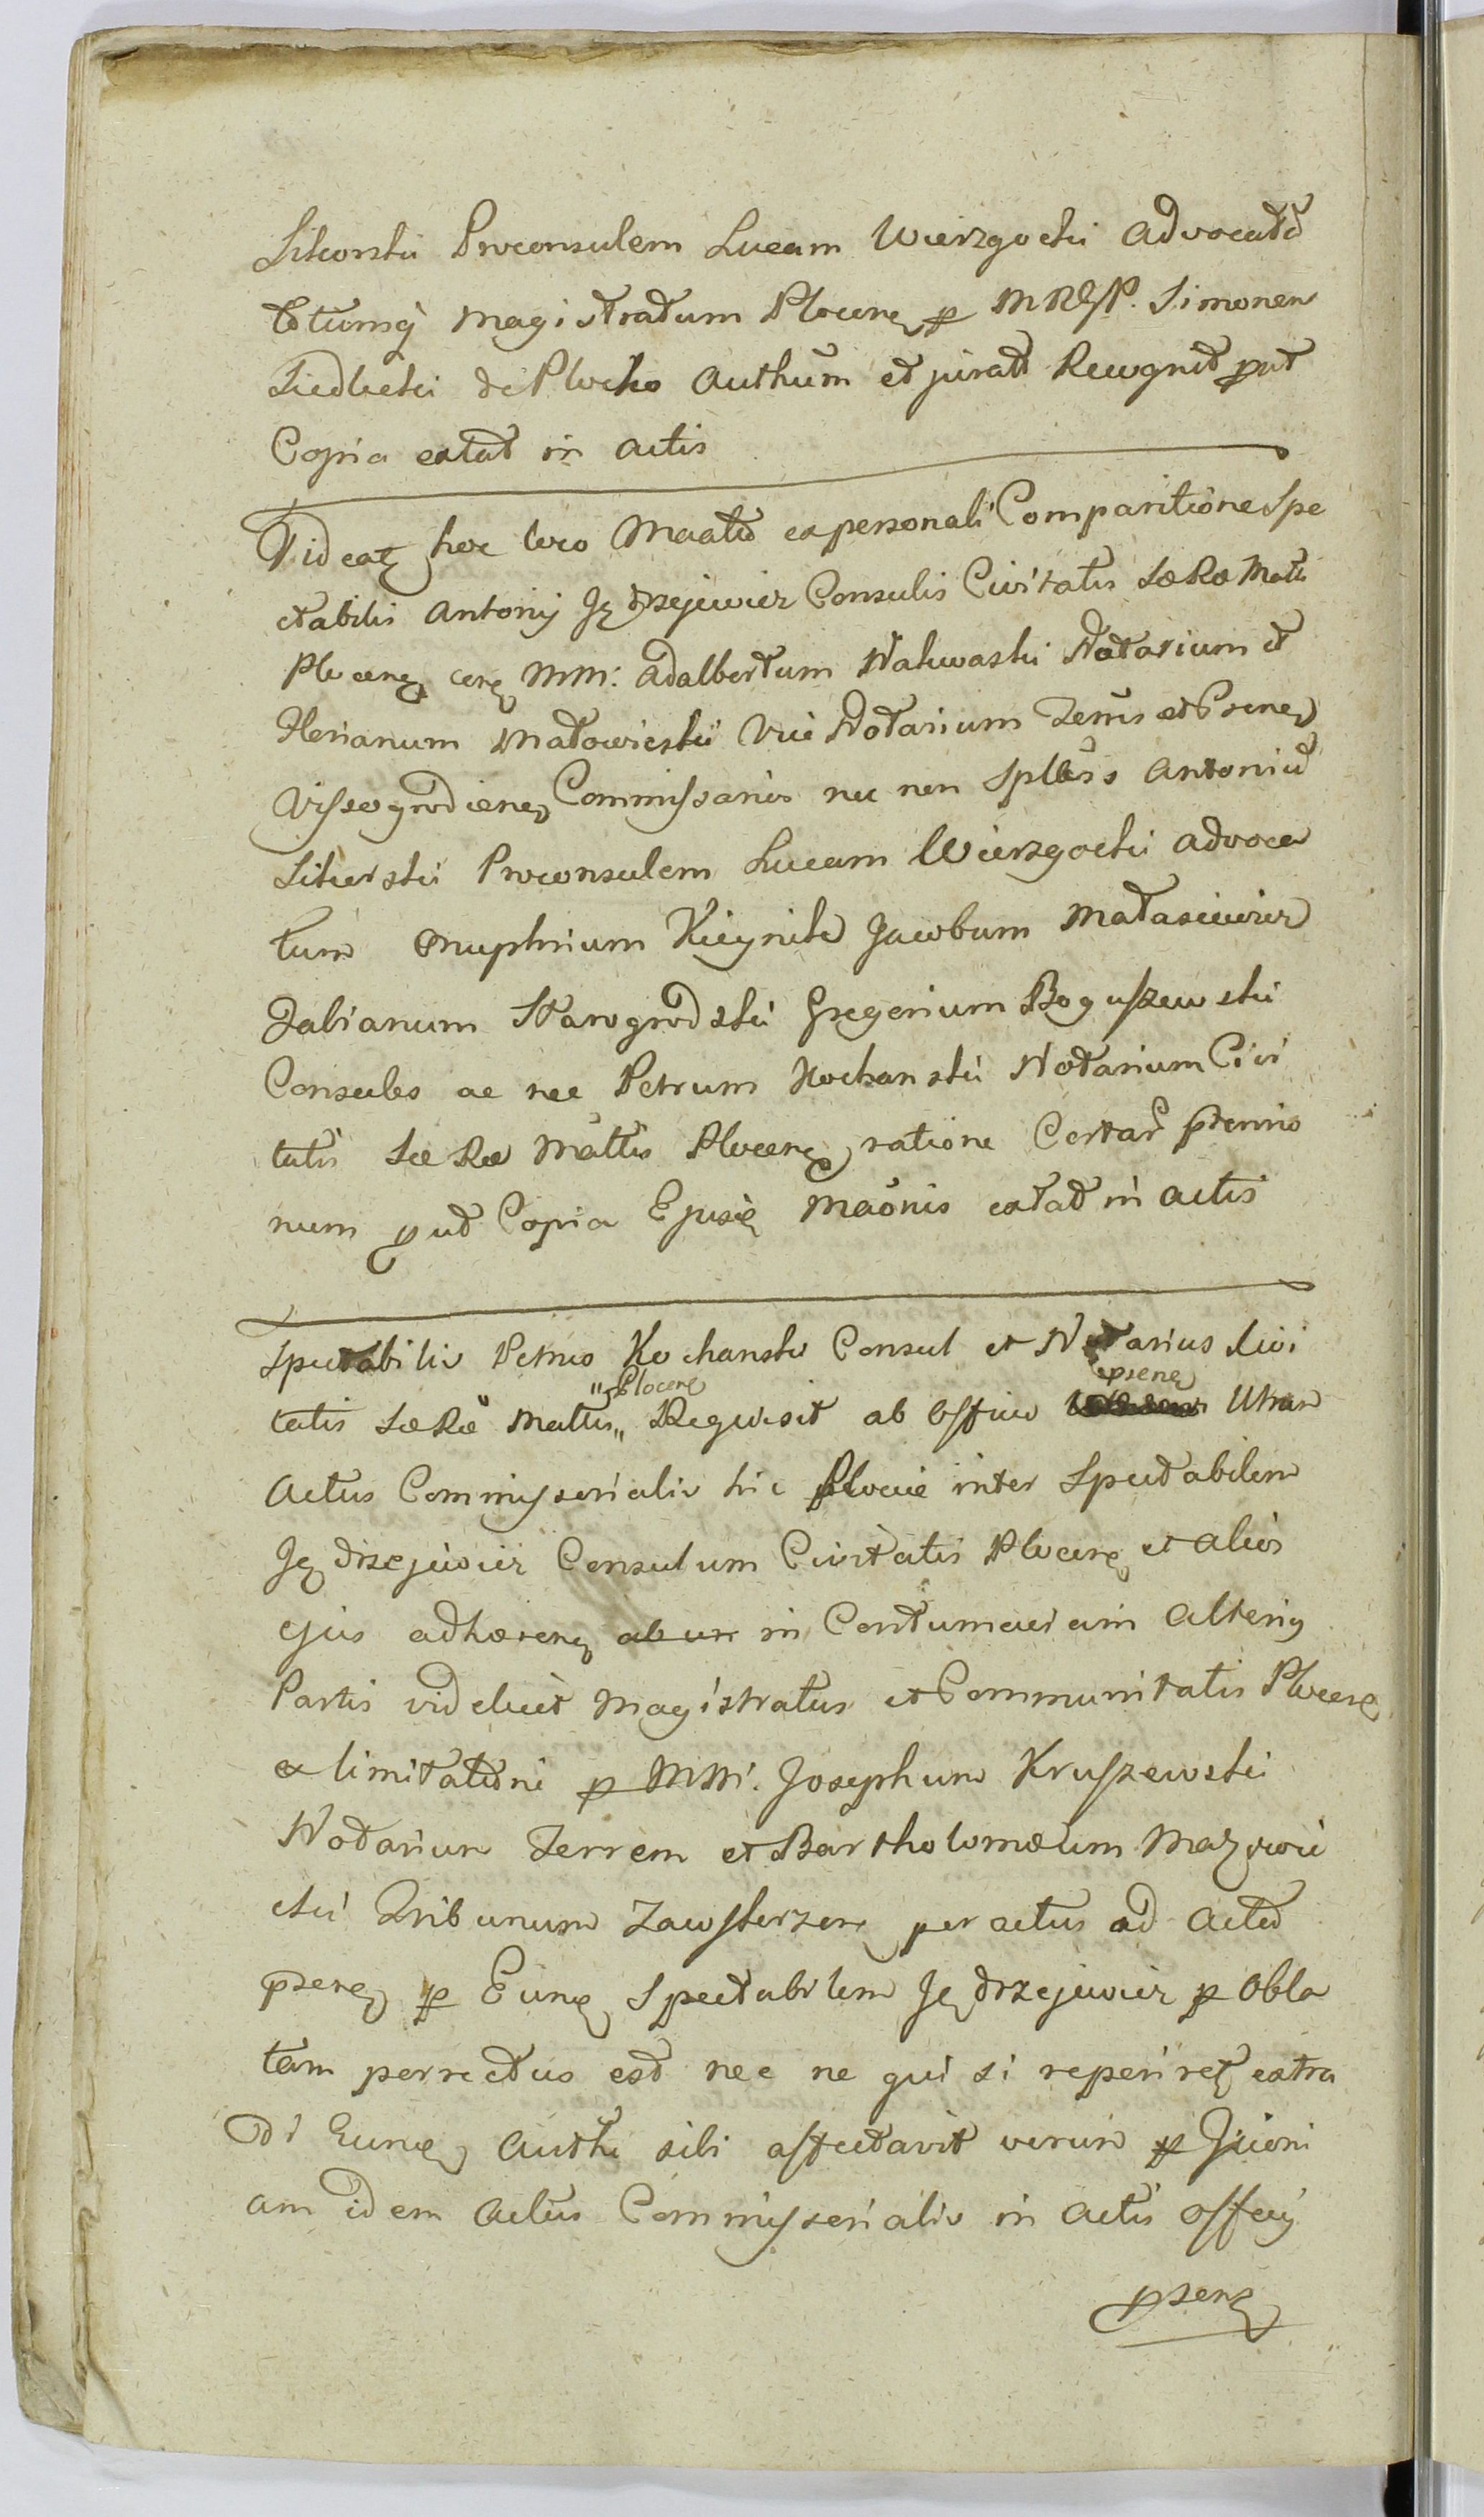 Sikorski Proconsulem Lucam Wierzgocki Advocatū
totumq̨ Magistratum Plocenę p MRSP. Simonem
Siedlecki de Plocko Authūm et juratt Recognit put
Copia extat in Actis
Videatę hoc loco Maatio ex personali Comparitione Spe
ctabilis Antonij Jędrzejewicz Consulis Civitatis SæRæ Mattis
Plocenę cerę MM: Adalbertum Nakwaski Notarium et
Florianum Małowieski Vice Notarium Terris et Csrenę
Vissogrodienę Commissarios nec non Splbēs Antoniū
Sikorski Proconsulem Lucam Wierzgocki Advoca
tum Onuphrium Kieynik Jacobum Matasiewicz
Fabianum Starogrodski Gregorium Boguszewski
Consules ac nec Petrum Kochanski Notarium Civi
tatis Sæ Ræ Mattis Plocenę ratione Certar ptermio
num put Copia Ejusdę Maōnis extat in Actis
Spectabilis Petrus Kochanski Consul et Notarius Civi
tatis SæRæ Mattis „Plocenę„ Requisit ab Officio psenę Utrum
Actus Commissorialis hic Plociæ inter Spectabilem
Jędrzejewicz Consulum Civitatis Plocenę et alios
ejus adhærenę ab un in Contumaciam Alterius
Partis videlicet Magistratus et Communitatis Plocenę
ex limitatione p MM. Josephum Kruszewski
Notarium Terrem et Bartholomæum Mazowie
cki Tribunum Zawskrzenę peractus ad Acta
psenę p Eunę Spectabilem Jędrzejewicz p Obla
tam perrectus est nec ne qui si reperiretę extra
di Eunę Authē sibi affectavit verum p Jicōni
am idem Actus Commissorialis in Actis Officij
psenę